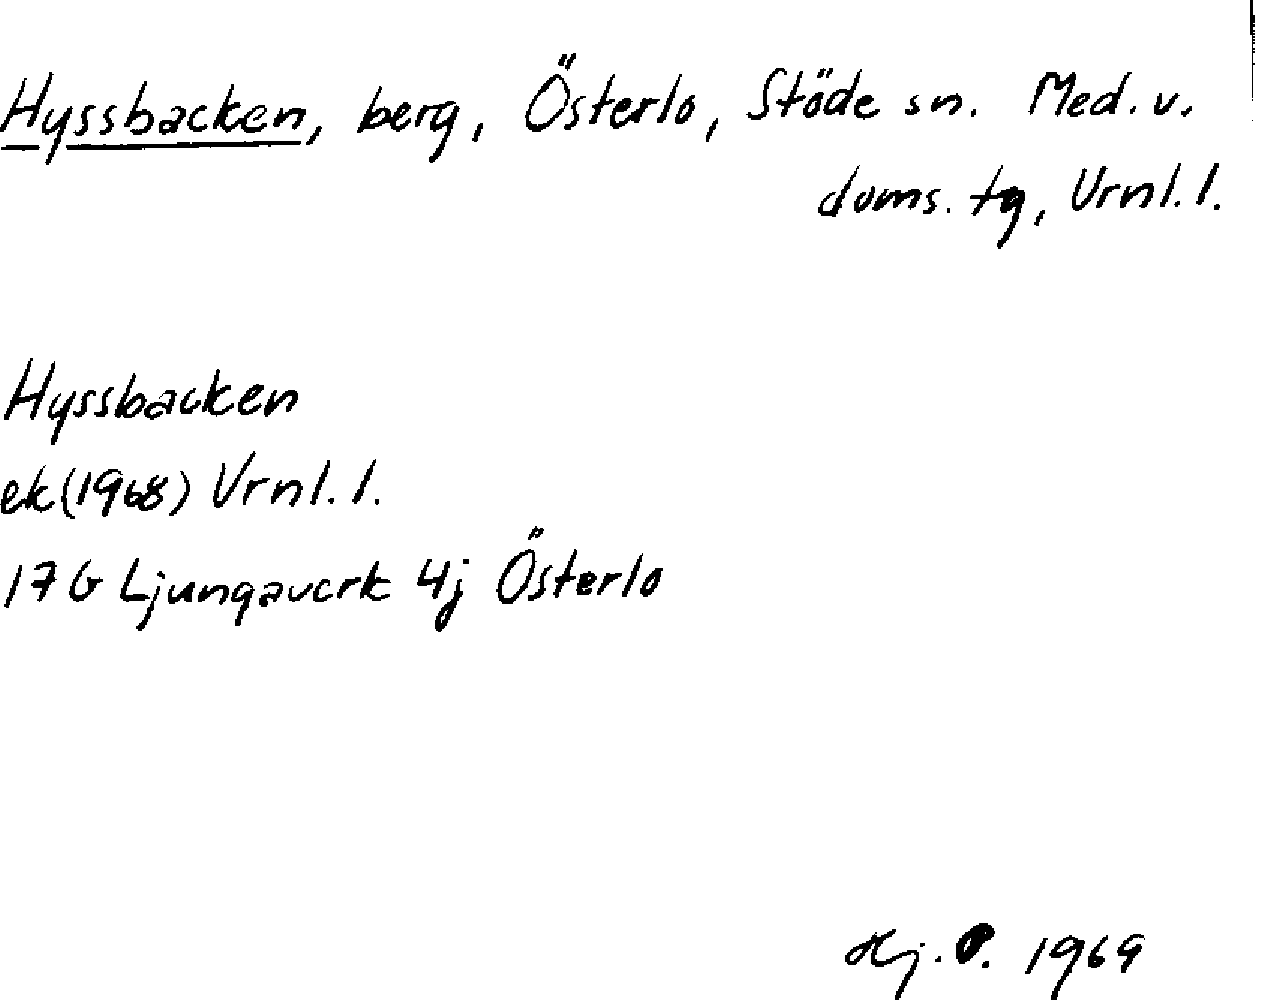 Hyssbacken, berg, Österlo, Stöde sn. Med. v.
doms. tg, Vrnl. l.
Hyssbacken
ek (1968) Vrnl. l.
17 G Ljungaverk 4j Österlo
Hj. P. 1969